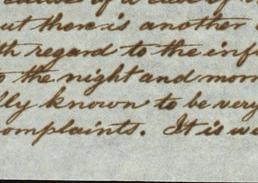 of a
but there is another
th regard to the inf
the night and mor
lly known to be very
omplaints. It is w